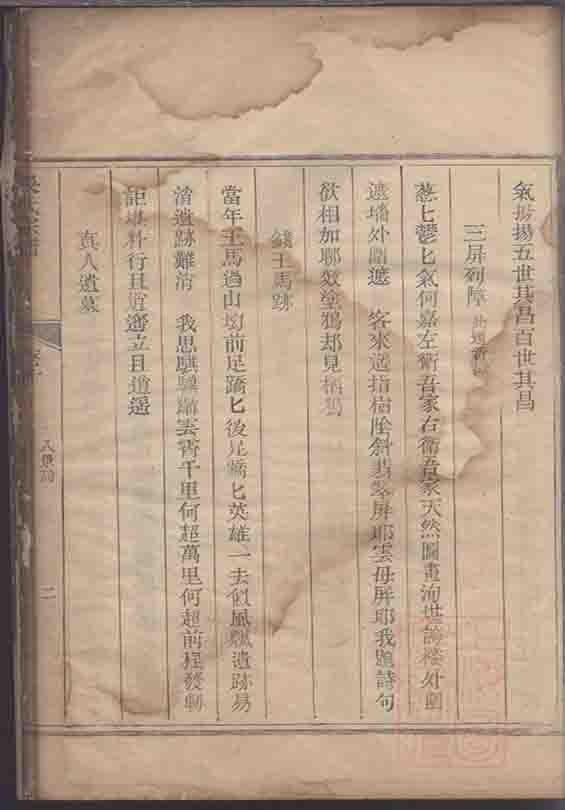 氣揚揚五世其昌百世其昌
三屏列障
葱匕鬱匕氣何嘉左衛吾家右衛吾家天然圖畫洵堪誇樓外圍
遮墻外圍遮 客來遥指樹陰斜翡翠屏耶雲母屏耶我題詩句
欲相加聊效塗鴉却見栖鴉
錢王馬跡
當年王馬過山坳前足蹻匕後足蹻匕英雄一去似風飄遺跡易
消遺跡難消 我思騏驥躡雲霄千里何超萬里何超前程發軔
詎堪料行且逍遥立且逍遥
真人遺墓
八景詞
二